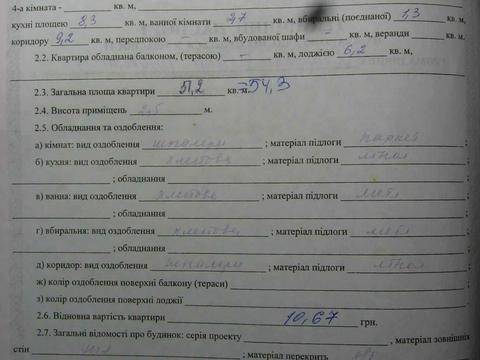 4-а кімната - кв. м,
кухні площею 8,3 кв. м, ванної кімнати 2,7 кв. м, вбиральні (поєднаної) 1,3 кв. м,
коридору 9,2 кв. м, передпокою - кв. м, вбудованої шафи - кв. м, веранди кв. м.
2.2. Квартира обладнана балконом, (терасою) - кв. м, лоджією 6,2 кв. м,
2.3. Загальна площа квартири 51,2 кв. м =54,3
2.4. Висота приміщень 2,5 м.
2.5. Обладнання та оздоблення:
а) кімнат: вид оздоблення шпалери ; матеріал підлоги паркет ;
б) кухня: вид оздоблення клейова ; матеріал підлоги лінол ;
; обладнання
в) ванна: вид оздоблення клейова ; матеріал підлоги метл ;
; обладнання
г) вбиральня: вид оздоблення клейова ; матеріал підлоги метл ;
; обладнання
д) коридор: вид оздоблення шпалери ; матеріал підлоги лінол ;
ж) колір оздоблення поверхні балкону (тераси) ;
з) колір оздоблення поверхні лоджії .
2.6. Відновна вартість квартири 10,67 грн.
2.7. Загальні відомості про будинок: серія проекту , матеріал зовнішніх
стін , матеріал перекрить